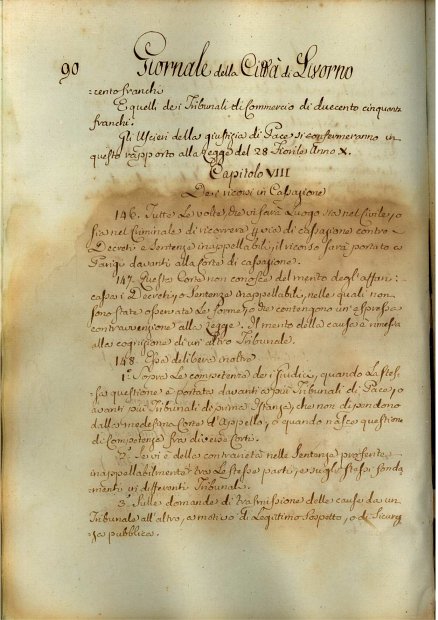 90 Giornale della Città di Livorno
:cento franchi
E quelli dei Tribunali di Commercio di duecento cinquanta
franchi.
Gli Uscieri della giustizia di Pace si conformeranno in
questo rapporto alla Legge del 28 Fiorile Anno X.
Capitolo VIII
Dei ricorsi in Cassazione
146. Tutte le volte, che vi sarà Luogo sia nel Civile, o
sia nel Criminale di ricorrere per via di cassazione contro
Decreti, e Sentenze inappellabili, il ricorso sarà portato a
Parigi davanti alla Corte di cassazione.
147. Questa Corte non conosce del merito degli affari:
cassa i Decreti, o Sentenze inappellabili, nelle quali non
sono state osservate le forme, o che contengono un'espressa
contravvenzione alla Legge. Il merito della causa è rimesso
alla cognizione di un'altro Tribunale.
148. Essa delibera inoltre
1.° Sopra la competenza dei Giudici, quando la stes-
sa questione è portata davanti a più Tribunali di Pace, o
avanti più Tribunali di prima Istanza, che non dipendono
dalla medesima Corte d'Appello, o quando nasce questione
di Competenza fra diverse Corti.
2.° Se vi è della contrarietà nelle Sentenze proferite
inappellabilmente tra le stesse parti, e sugli stessi fonda
menti in differenti Tribunali.
3.° Sulle domande di trasmissione delle cause da un
Tribunale all'altro, a motivo di Legittimo sospetto, o di Sicurez
za pubblica.